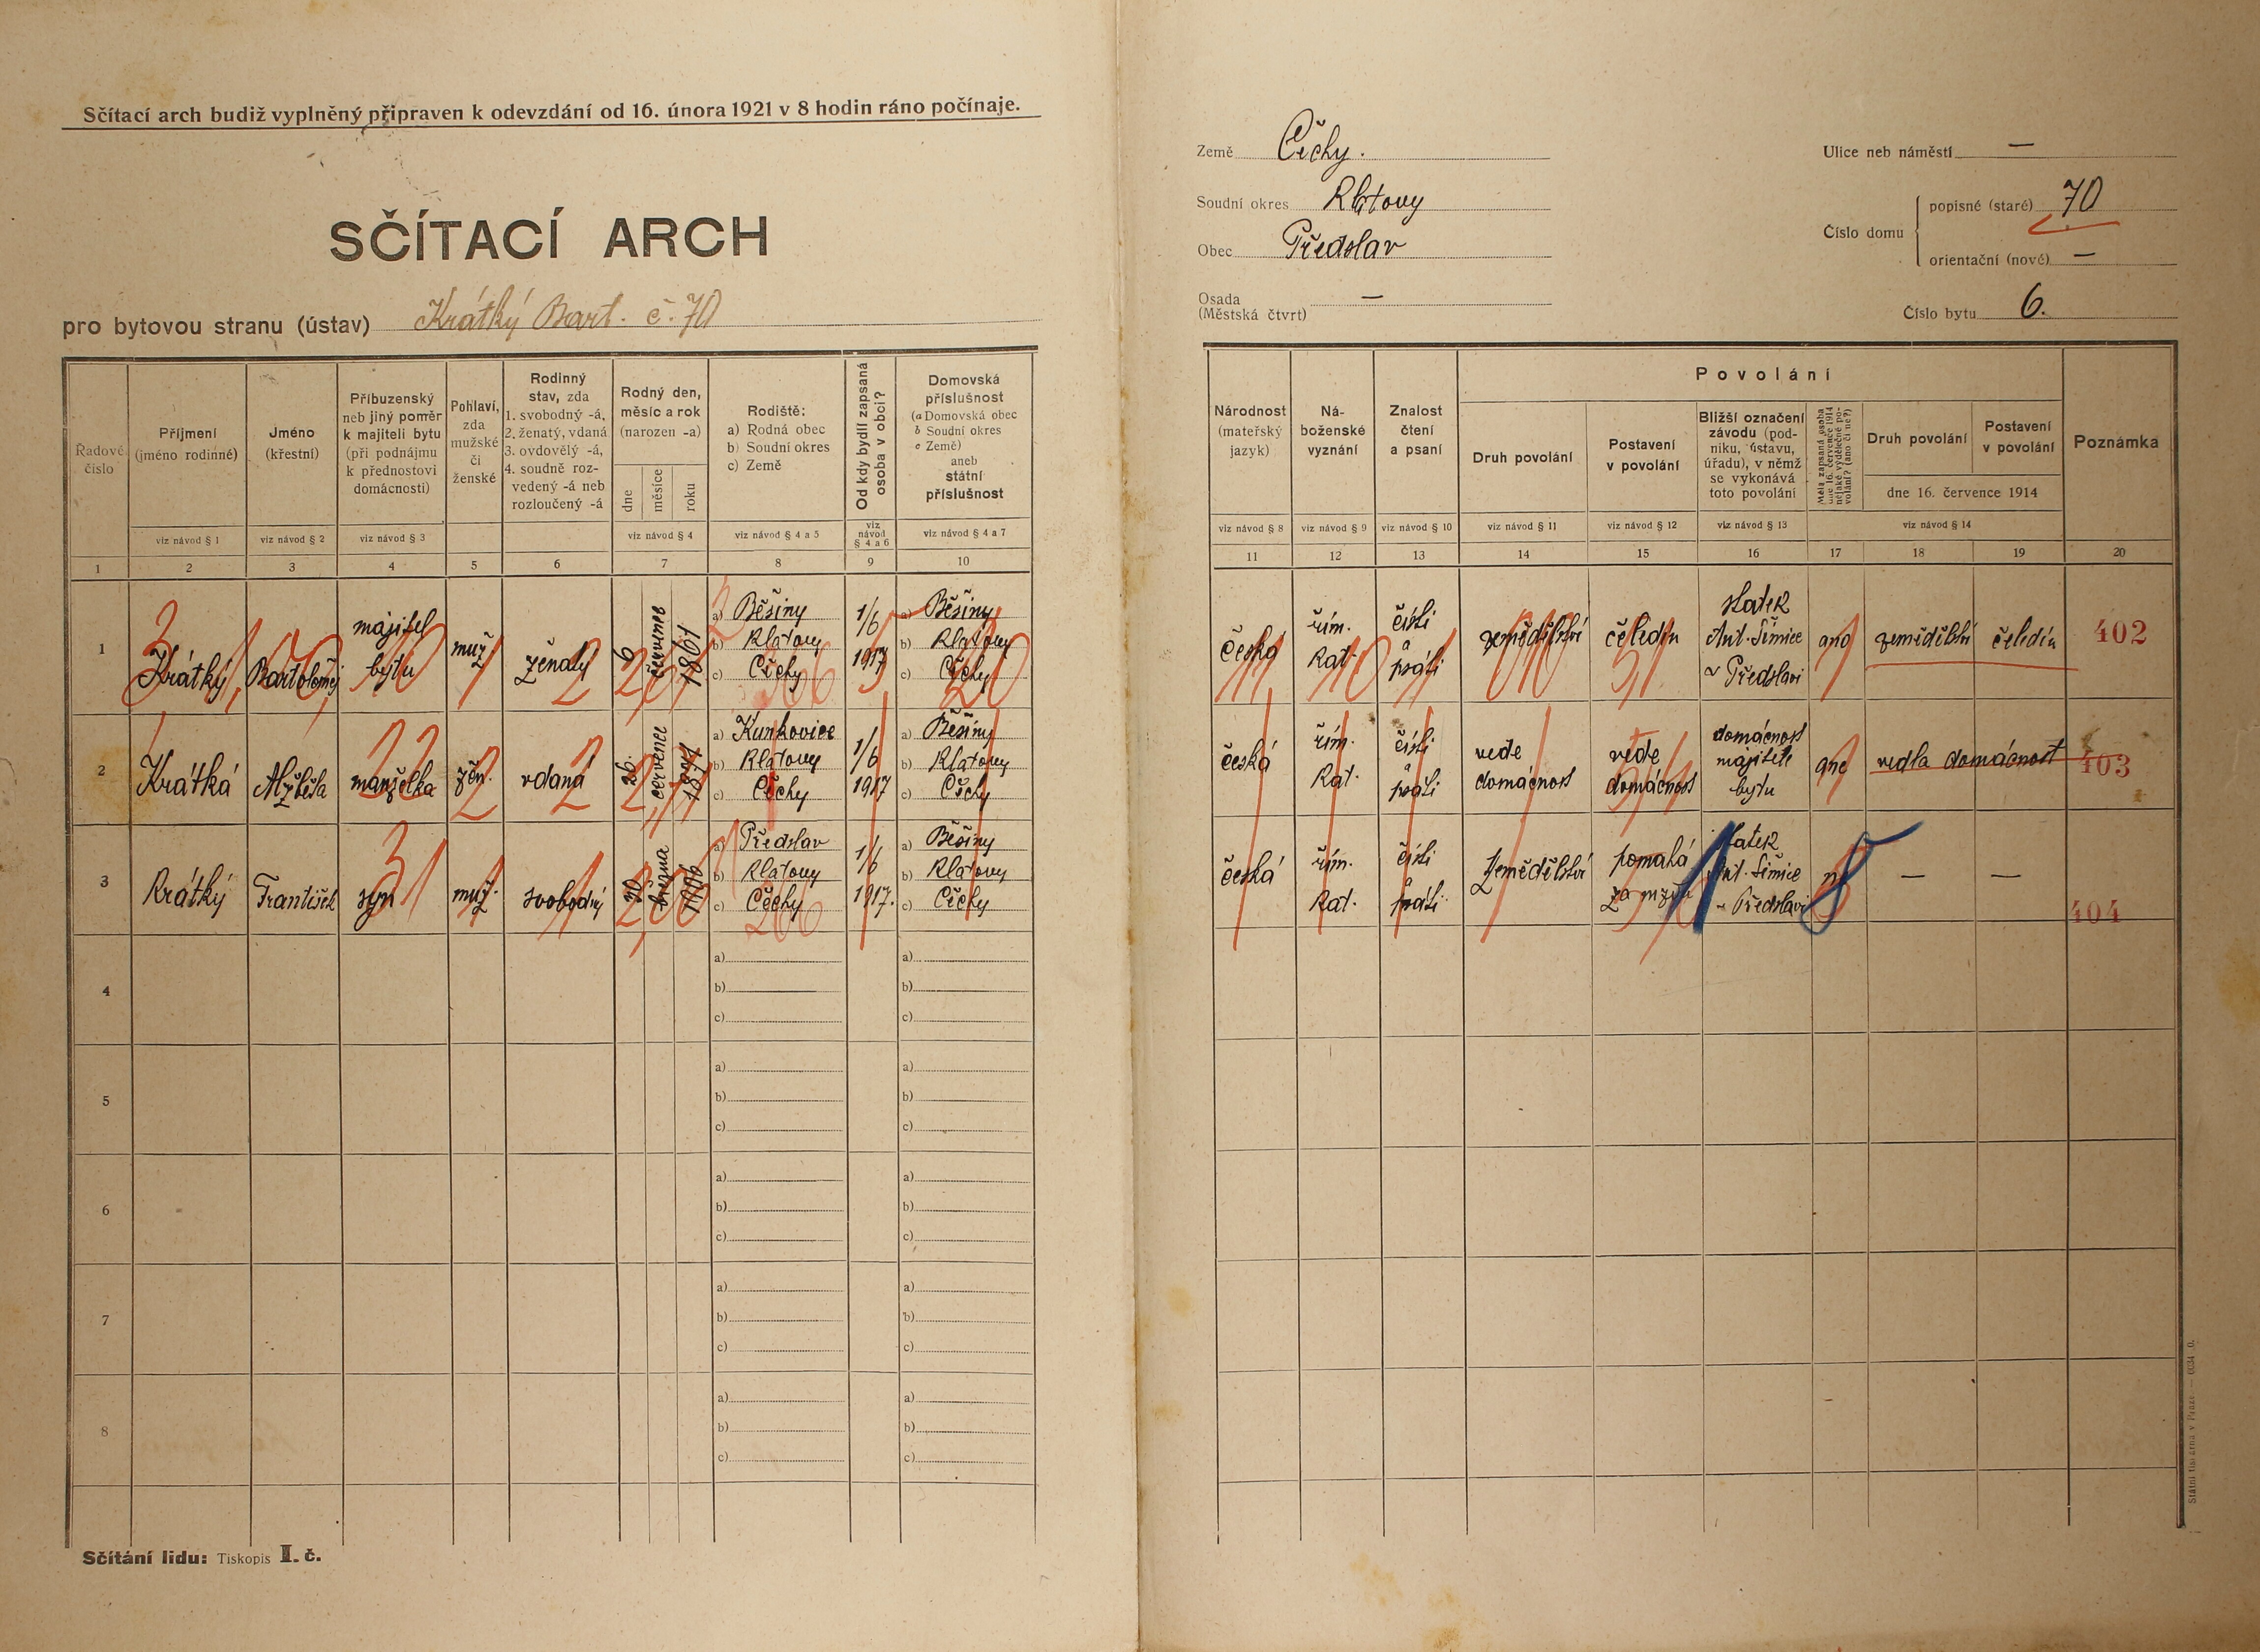 Sčítací arch budiž vyplněný připraven k odevzdání od 16. února 1921 v 8 hodin ráno počínaje.
SČÍTACÍ ARCH
pro bytovou stranu (ústav) Krátký Bart. č. 70
Země Čechy.
Soudní okres Klatovy
Obec Předslav
Osada —
(Městská čtvrt)
Ulice neb náměstí —
Číslo domu
popisné (staré) 70
orientační (nové) —
Číslo bytu 6.
Řadové číslo
Příjmení
(jméno rodinné)
Jméno
(křestní)
Příbuzenský
neb jiný poměr
k majiteli bytu
(při podnájmu
k přednostovi
domácnosti)
Pohlaví,
zda
mužské
či
ženské
Rodinný
stav, zda
1. svobodný -á,
2. ženatý, vdaná
3. ovdovělý -á,
4. soudně roz-
vedený -á neb
rozloučený -á
Rodný den,
měsíc a rok
(narozen -a)
dne
měsíce
roku
Rodiště:
a) Rodná obec
b) Soudní okres
c) Země
Od kdy bydlí zapsaná
osoba v obci?
Domovská
příslušnost
(a Domovská obec
b Soudní okres
c Země)
aneb
státní
příslušnost
viz návod § 1
viz návod § 2
viz návod § 3
viz návod § 4
viz návod § 4 a 5
viz
návod
§ 4 a 6
viz návod § 4 a 7
1 2 3 4 5 6 7 8 9 10
Národnost
(mateřský
jazyk)
Ná-
boženské
vyznání
Znalost
čtení
a psaní
Povolání
Druh povolání
Postavení
v povolání
Bližší označení
závodu (pod-
niku, ústavu,
úřadu), v němž
se vykonává
toto povolání
Měla zapsaná osoba
dne 16. července 1914
nějaké výdělečné po-
volání? (ano či ne?)
Druh povolání
Postavení
v povolání
dne 16. července 1914
Poznámka
viz návod § 8
viz návod § 9
viz návod § 10
viz návod § 11
viz návod § 12
viz návod § 13
viz návod § 14
11 12 13 14 15 16 17 18 19 20
1
Krátký
Bartoloměj
majitel
bytu
muž
ženatý
6
červenec
1861
a) Běšiny
b) Klatovy
c) Čechy
1/6
1917
a) Běšiny
b) Klatovy
c) Čechy
česká
řím.
kat.
čísti
a
psáti
zemědělství
čeledín
statek
Ant. Šimice
v Předslavi
ano
zemědělství
čeledín
402
2
Krátká
Alžběta
manželka
žen.
vdaná
26.
červenec
1871
a) Kunkovice
b) Klatovy
c) Čechy
1/6
1917
a) Běšiny
b) Klatovy
c) Čechy
česká
řím.
kat.
čísti
a
psáti
vede
domácnost
vede
domácnost
domácnost
majitele
bytu
ano
vedla domácnost
403
3
Krátký
František
syn
muž.
svobodný
30
března
1906
a) Předslav
b) Klatovy
c) Čechy
1/6
1917.
a) Běšiny
b) Klatovy
c) Čechy
česká
řím.
kat.
čísti
a
psáti
Zemědělství
pomáhá
za mzdu
statek
Ant. Šimice
v Předslavi
ne
—
—
404
4
a)
b)
c)
a)
b)
c)
5
a)
b)
c)
a)
b)
c)
6
a)
b)
c)
a)
b)
c)
7
a)
b)
c)
a)
b)
c)
8
a)
b)
c)
a)
b)
c)
Sčítání lidu: Tiskopis I. č.
Státní tiskárna v Praze